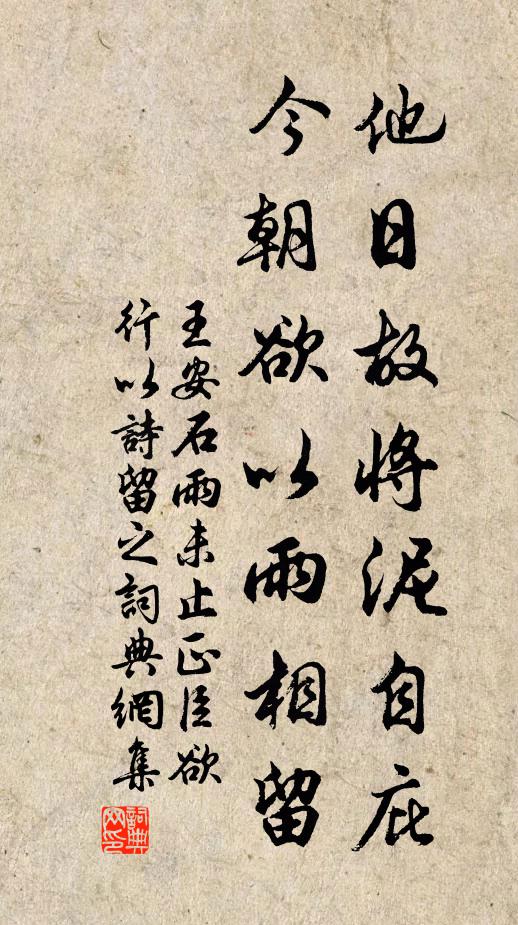 他日故將泥自庇
今朝欲以雨相留
王安石雨未止正臣欲
行以詩留之詞典網集
詞典
网印